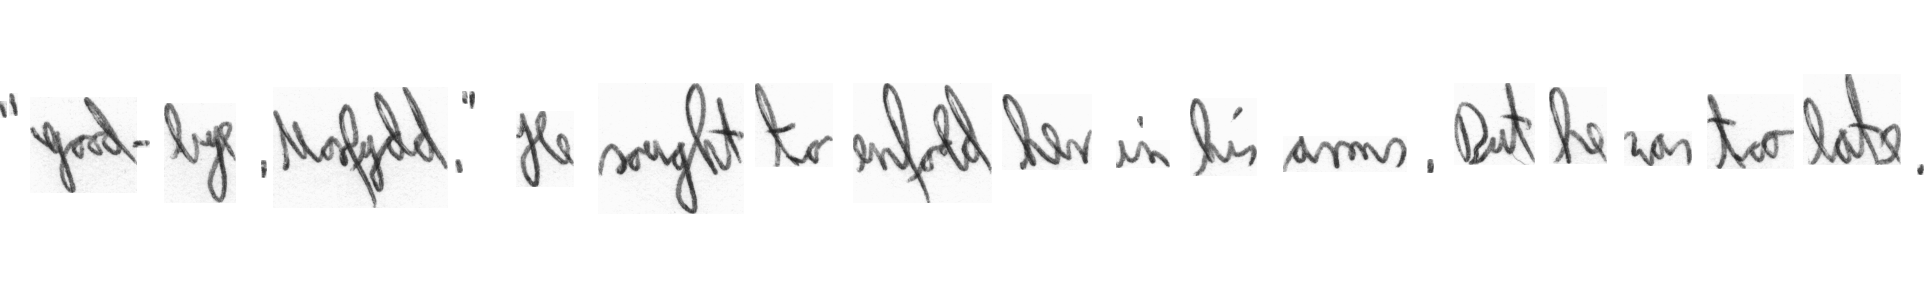 "Good-bye, Morfydd." He sought to enfold her in his arms. But he was too late.